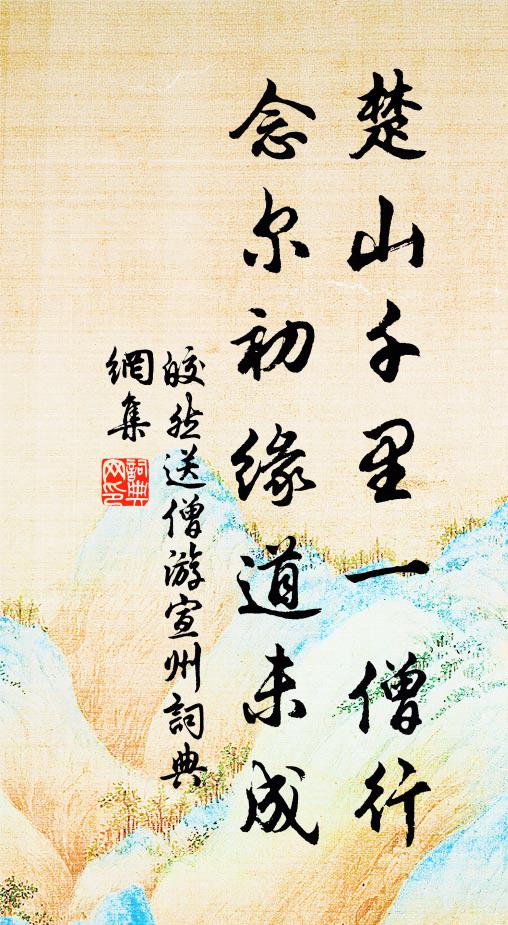 楚山千里一僧行
念尔初缘道未成
皎然送僧游宣州詞典
網集
詞典
网印